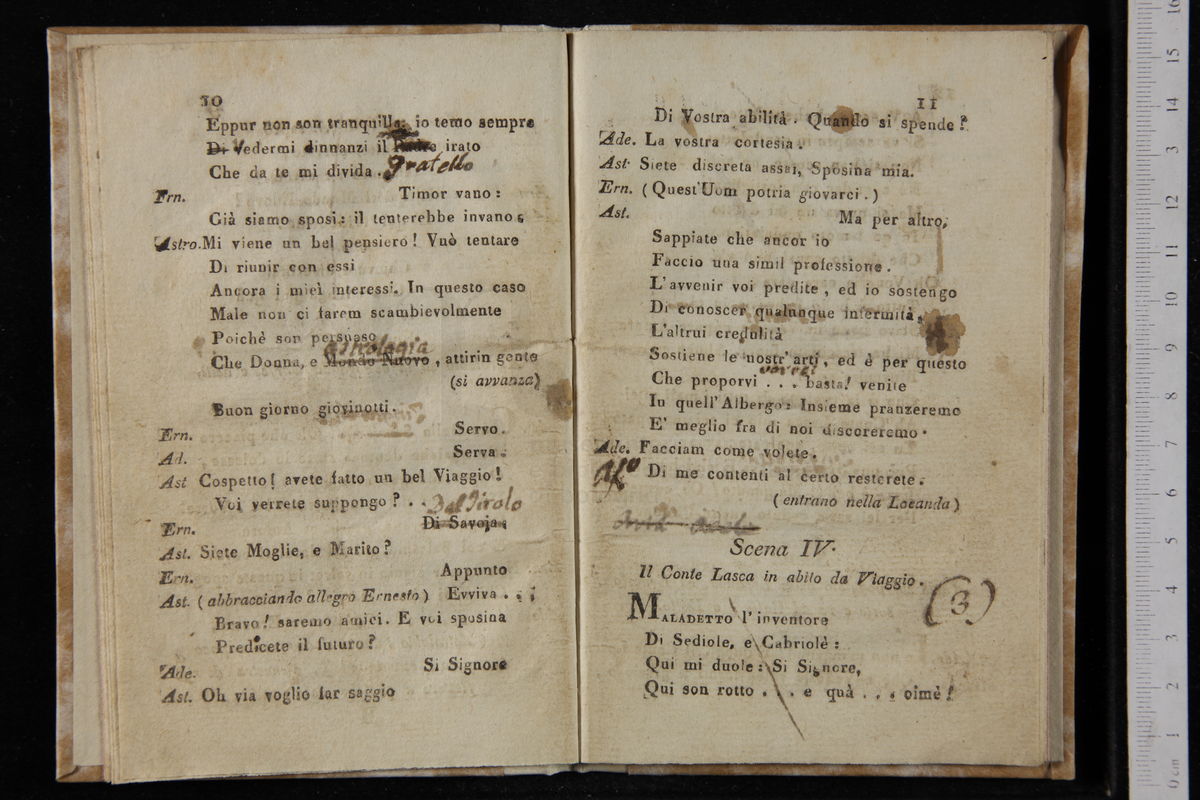 10
Eppur non son tranquilla: io temo sempre
Di Vedermi dinnanzi il Padre irato
fratello
Che da te mi divida.
Ern. Timor vano:
Già siamo sposi: il tenterebbe invano.
Astro. Mi viene un bel pensiero! Vuò tentare
Di riunir con essi
Ancora i miei interessi. In questo caso
Male non ci farem scambievolmente
Poichè son persuaso
astrologia
Che Donna, e Mondo Nuovo, attirin gente
(si avvanza)
Buon giorno giovinotti.
Ern. Servo.
Ad. Serva.
Ast Cospetto! avete fatto un bel Viaggio!
Voi verrete suppongo? . .
Del Tirolo
Ern. Di Savoja.
Ast. Siete Moglie, e Marito?
Ern. Appunto
Ast. (abbracciando allegro Ernesto) Evviva . . .
Bravo! saremo amici. E voi sposina
Predicete il futuro?
Ade. Si Signore
Ast. Oh via voglio far saggio
11
Di Vostra abilità. Quando si spende?
Ade. La vostra cortesia.
Ast. Siete discreta assai, Sposina mia.
Ern. (Quest'Uom potria giovarci.)
Ast. Ma per altro,
Sappiate che ancor io
Faccio una simil professione.
L'avvenir voi predite, ed io sostengo
Di conoscer qualunque infermità,
L'altrui credulità
Sostiene le nostr'arti, ed è per questo
vorrei
Che proporvi . . . basta! venite
In quell'Albergo: Insieme pranzeremo
E' meglio fra di noi discoreremo.
Ade. Facciam come volete.
Di me contenti al certo resterete.
(entrano nella Locanda)
Scena IV.
Il Conte Lasca in abito da Viaggio.
(3)
MALADETTO l'inventore
Di Sediole, e Cabriolè:
Qui mi duole: Si Signore,
Qui son rotto . . . e quà . . . oimè!
0 cm 1 2 3 4 5 6 7 8 9 10 11 12 13 14 15 16